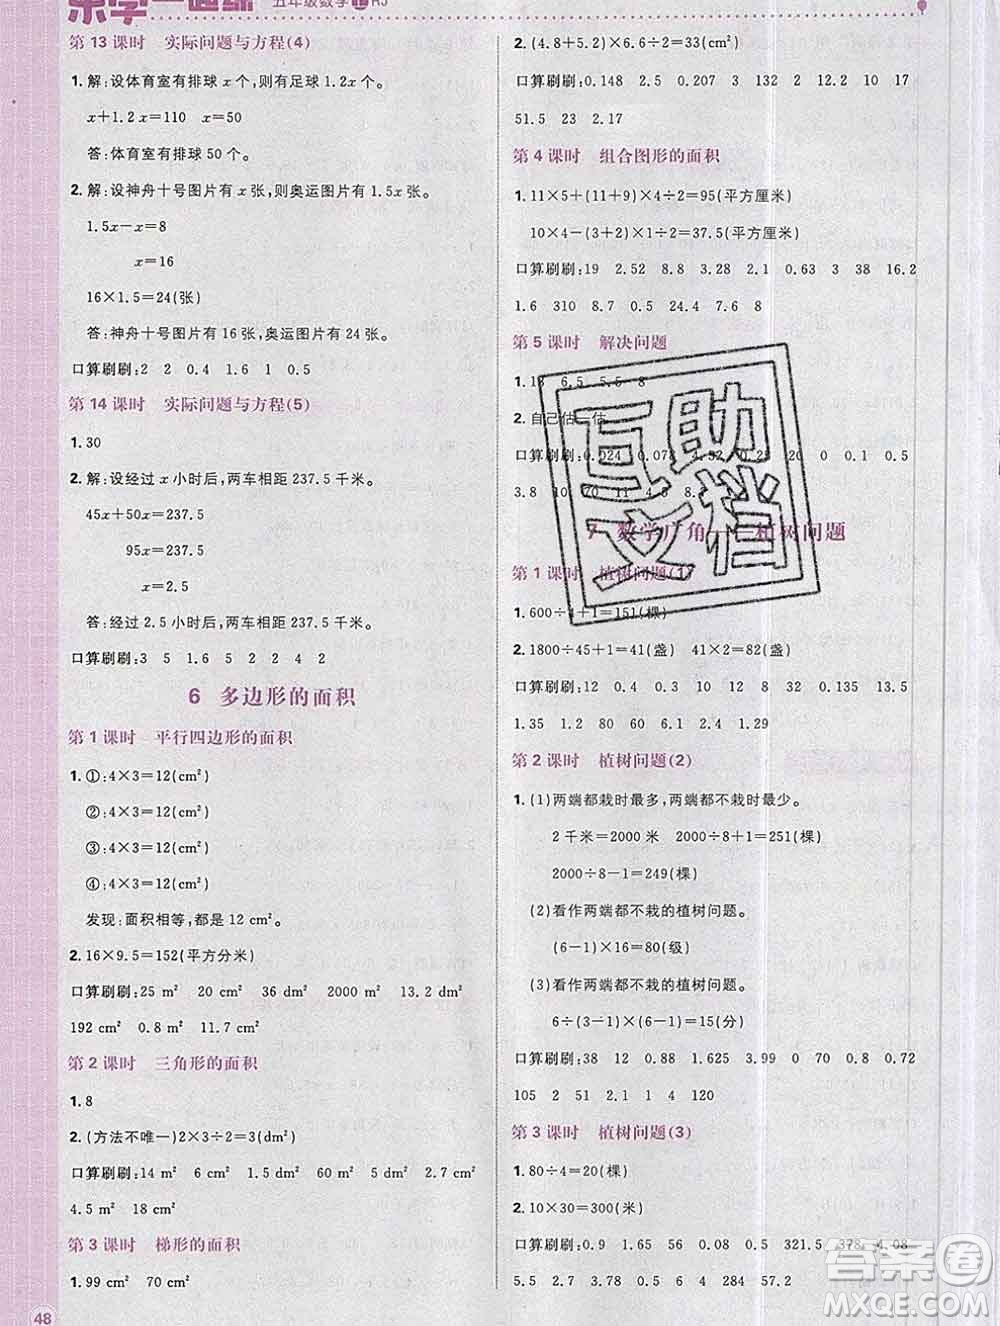 五年级数学上RJ
第 13 课时 实际问题与方程(4)
1. 解:设体育室有排球 x 个,则有足球 1.2x 个。
x+1.2x=110 x=50
答:体育室有排球 50 个。
2. 解:设神舟十号图片有 x 张,则奥运图片有 1.5x 张。
1.5x-x=8
x=16
16×1.5=24(张)
答:神舟十号图片有 16 张,奥运图片有 24 张。
口算刷刷:2 2 0.4 1.6 1 0.5
第 14 课时 实际问题与方程(5)
1. 30
2. 解:设经过 x 小时后,两车相距 237.5 千米。
45x+50x=237.5
95x=237.5
x=2.5
答:经过 2.5 小时后,两车相距 237.5 千米。
口算刷刷:3 5 1.6 5 2 2 4 2
6 多边形的面积
第 1 课时 平行四边形的面积
1. ①:4×3=12(cm²)
②:4×3=12(cm²)
③:4×3=12(cm²)
④:4×3=12(cm²)
发现:面积相等,都是 12 cm²。
2. 16×9.5=152(平方分米)
口算刷刷:25 m² 20 cm² 36 dm² 2000 m² 13.2 dm²
192 cm² 0.8 m² 11.7 cm²
第 2 课时 三角形的面积
1. 8
2. (方法不唯一)2×3÷2=3(cm²)
口算刷刷:14 m² 6 cm² 9 dm² 5 dm² 2.7 cm²
4.5 m² 2 dm² 9 m²
第 3 课时 梯形的面积
1. 99 cm² 70 cm²
48
2. (4.8+5.2)×6.6÷2=33(cm²)
口算刷刷:0.148 2.5 0.207 3 132 2 10.2
51.5 23 2.17
第 4 课时 组合图形的面积
1. 11×5+(11+9)×4÷2=95(平方厘米)
10×4-(3+2)×1÷2=37.5(平方厘米)
口算刷刷:19 2.52 8.8 3.28 2.1 0.63 3 38 16.2
1.6 310 8.7 0.5 24.4 7.6 8
第 5 课时 解决问题
1. 18 6.5 5.5 8
2. 自己估一估
口算刷刷:0.024 0.078 4.52 25 20 0 0.81
3.8 10 70 11 4.8 8.3
7 数学广角 植树问题
第 1 课时 植树问题(1)
1. 600÷4+1=151(棵)
2. 1800÷45+1=41(盏) 41×2=82(盏)
口算刷刷:10 85 1 0.6 0.42 0.136 13.5
1.35 1.2 80 60 6.1 2.4 1.29
第 2 课时 植树问题(2)
1. (1)两端都栽时最多,两端都不栽时最少。
2 千米=2000 米 2000÷8+1=251(棵)
2000÷8-1=249(棵)
(2)看作两端都不栽的植树问题。
(6-1)×16=80(级)
(3)看作两端都不栽的植树问题。
6÷(3-1)×(6-1)=15(分)
口算刷刷:38 12 0.88 1.625 3.99 0 70 0.8 0.72
105 2 51 2.1 4 120
第 3 课时 植树问题(3)
1. 80÷4=20(棵)
2. 10×30=300(米)
口算刷刷:0.9 1.65 6 56 1 30 321.5 378 4.08
5.5 2.7 0.05 4 6 284 57.2
互助
文档
答案圈
MXQE.COM